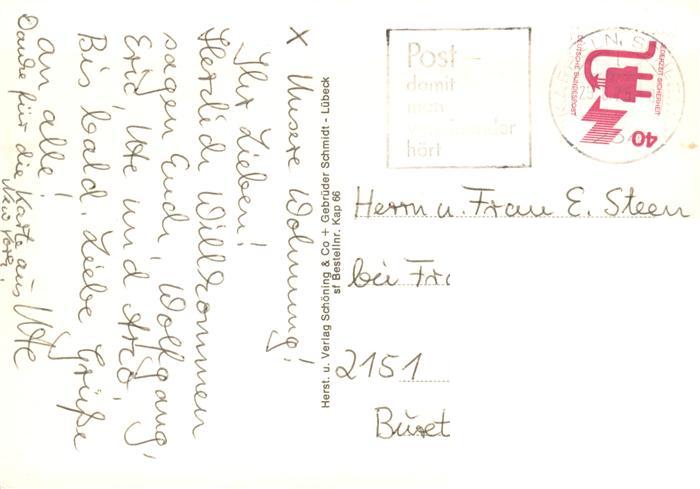 X Unsere Wohnung!
Ihr Lieben!
Herzlich Willkommen
sagen Euch, Wolfgang,
Eric, Ute und Arno,
Bis bald. Liebe Grüße
an alle! Ute
Danke für die Karte aus
New York!
Herst. u. Verlag Schöning & Co + Gebrüder Schmidt - Lübeck
sf Bestellnr. Kap 66
Post-
damit
man
voneinander
hört
JEDERZEIT SICHERHEIT
DEUTSCHE BUNDESPOST
40
Herrn u. Frau E. Steen
bei Fr
2151
Buset